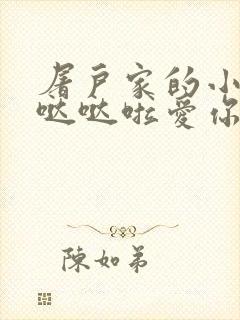 屠户家的小
哒哒啦爱你
陳如弟